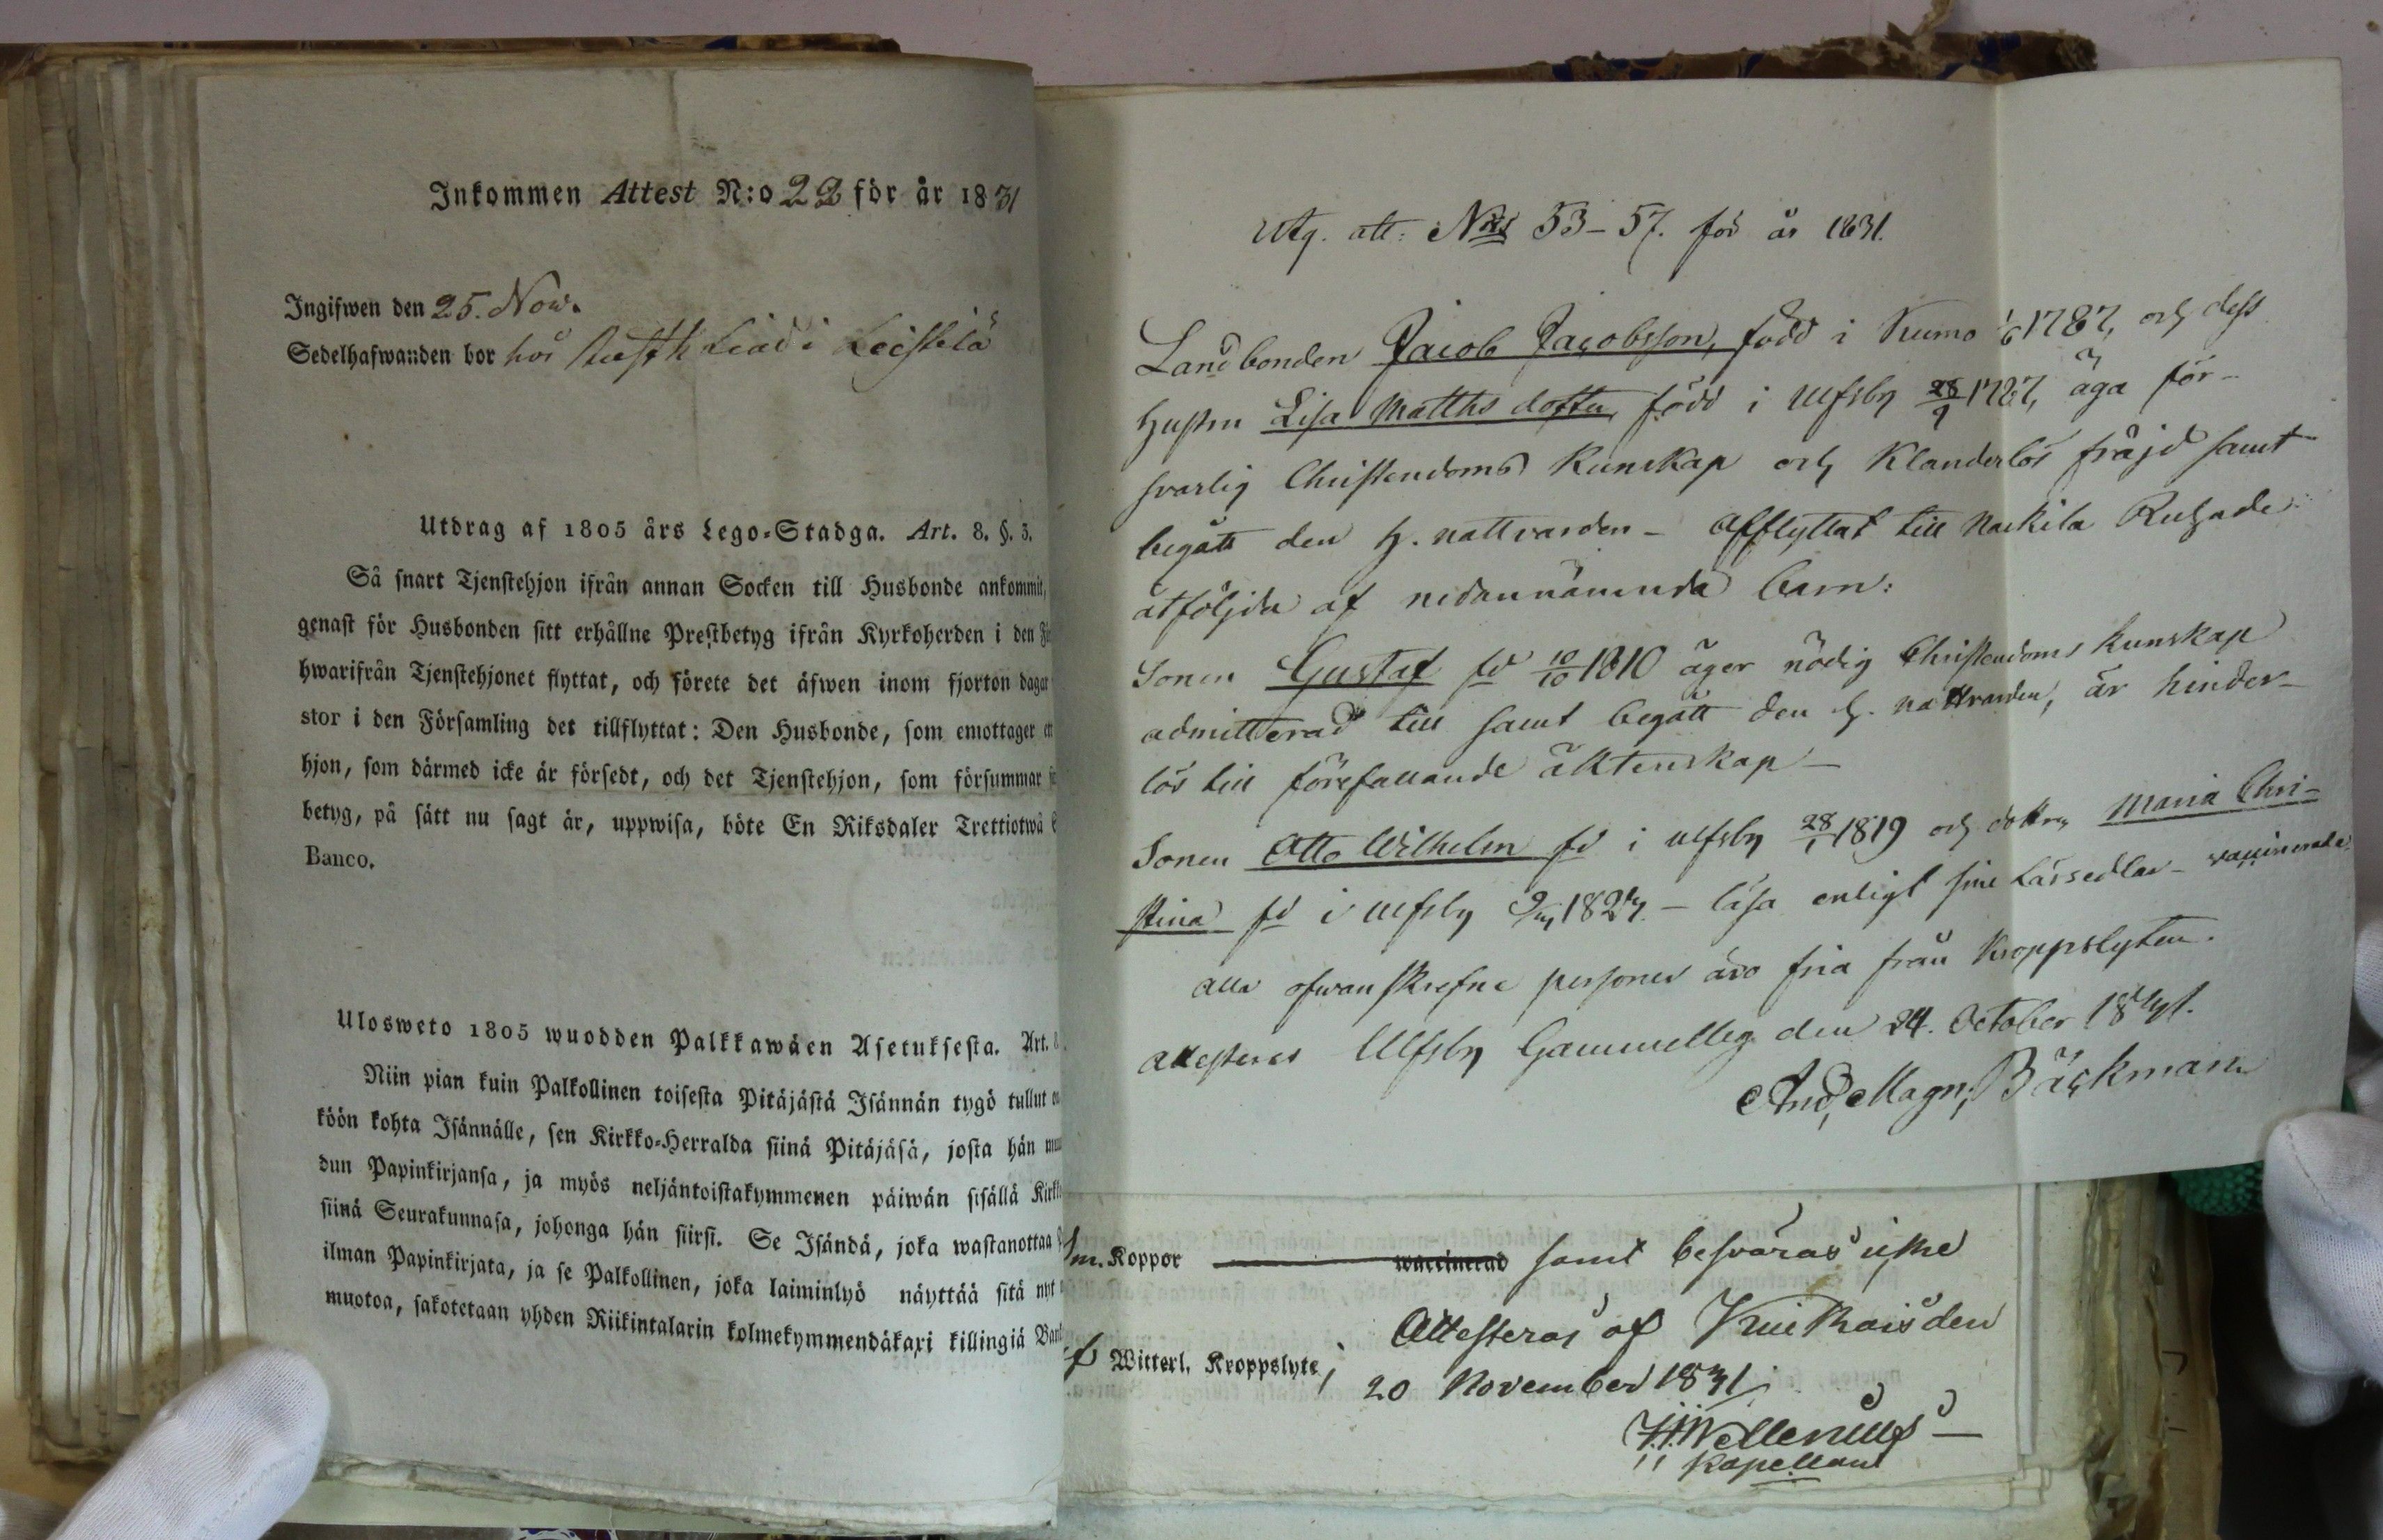 Inkommen Attest N:o 22 för år 1831
Ingifwen den 25. Nov.
Sedelhafwanden bor hos i Leistilä
Utdrag af 1805 års Lego-Stadga. Art. 8. §. 3.
Så snart Tjenstehjon ifrån annan Socken till Husbonde ankommit,
genast för Husbonden sitt erhållne Prestbetyg ifrån Kyrkoherden i den
hwarifrån Tjenstehjonet flyttat, och förete det äfwen inom fjorton dagar
stor i den Församling det tillflyttat: Den Husbonde, som emottager
hjon, som därmed icke är försedt, och det Tjenstehjon, som försummar
betyg, på sätt nu sagt är, uppwisa, böte En Riksdaler Trettiotwå
Banco.
Ulosweto 1805 wuodden Palkkawäen Asetuksesta. Art.
Niin pian kuin Palkollinen toisesta Pitäjästä Isännän tygö tullut
köön kohta Isännälle, sen Kirkko-Herralda siinä Pitäjäsä, josta hän
dun Papinkirjansa, ja myös neljäntoistakymmenen päiwän sisällä
siinä Seurakunnasa, johonga hän siirsi. Se Isändä, joka wastanottaa
ilman Papinkirjata, ja se Palkollinen, joka laiminlyö näyttää sitä nyt
muotoa, sakotetaan yhden Riikintalarin kolmekymmendäkaxi killingiä
Utg. att: Nris 53-57. för år 1831.
Landbonden Jacob Jacobsson, född i Kumo 1/6 1787, och dess
hustru Lisa Matths dotter, född i Ulfsby 28/9 1787, äga för-
svarlig Christendoms Kunskap och Klanderlös fräjd samt
begått den H. nattvarden - Afflyttat till Nackila
åtföljda af nedannämnda barn:
Sonen Gustaf fd 10/10 1810 äger nödig Christendoms kunskap
admitterad till samt begått den H. nattvarden, är hinder-
lös till förefallande äktenskap -
Sonen Otto Wilhelm fd i Ulfsby 28/1 1819 och dottren Maria Chri-
stina fd i Ulfsby 1827. - läsa enligt sine Läsesedlar - vaccinerade.
Alla ofvanskrefne personer äro fria från Kroppslyten.
Attesteras Ulfsby Gammelby den 24. October 1831.
And. Magn. Bäckman
m. Koppor waccinerad samt besväras icke
af Witterl. Kroppslyte; Attesteras af den
20 November 1831
Kapellan